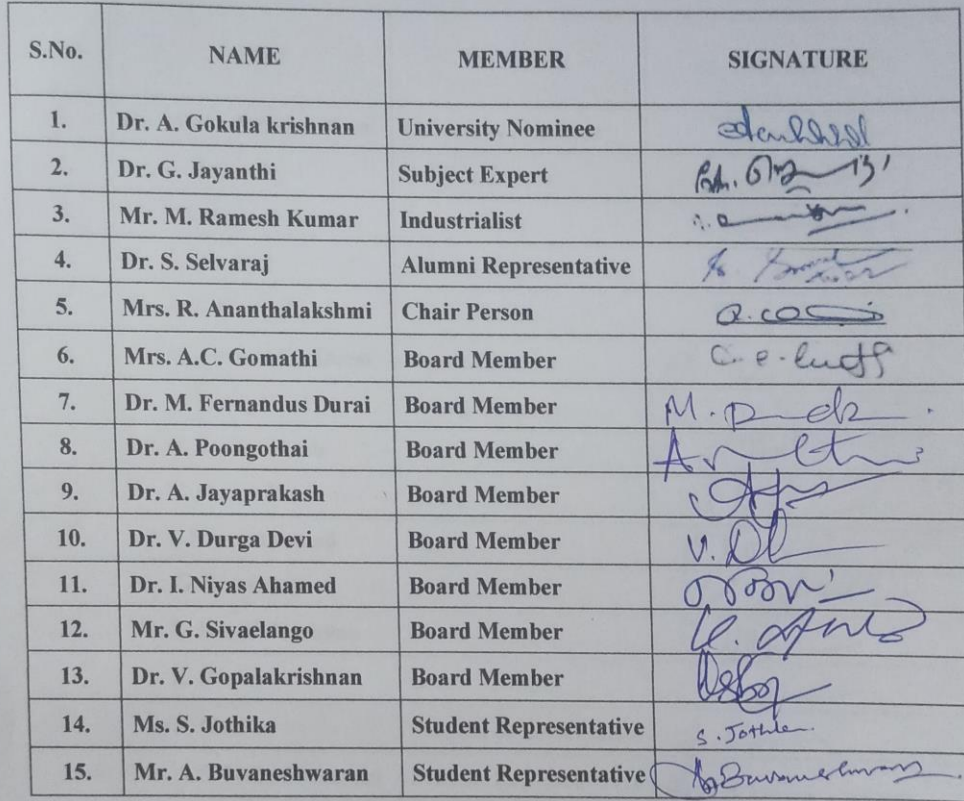 S.No. NAME MEMBER SIGNATURE
1. Dr. A. Gokula krishnan University Nominee
2. Dr. G. Jayanthi Subject Expert
3. Mr. M. Ramesh Kumar Industrialist
4. Dr. S. Selvaraj Alumni Representative
5. Mrs. R. Ananthalakshmi Chair Person
6. Mrs. A.C. Gomathi Board Member
7. Dr. M. Fernandus Durai Board Member
8. Dr. A. Poongothai Board Member
9. Dr. A. Jayaprakash Board Member
10. Dr. V. Durga Devi Board Member
11. Dr. I. Niyas Ahamed Board Member
12. Mr. G. Sivaelango Board Member
13. Dr. V. Gopalakrishnan Board Member
14. Ms. S. Jothika Student Representative
15. Mr. A. Buvaneshwaran Student Representative